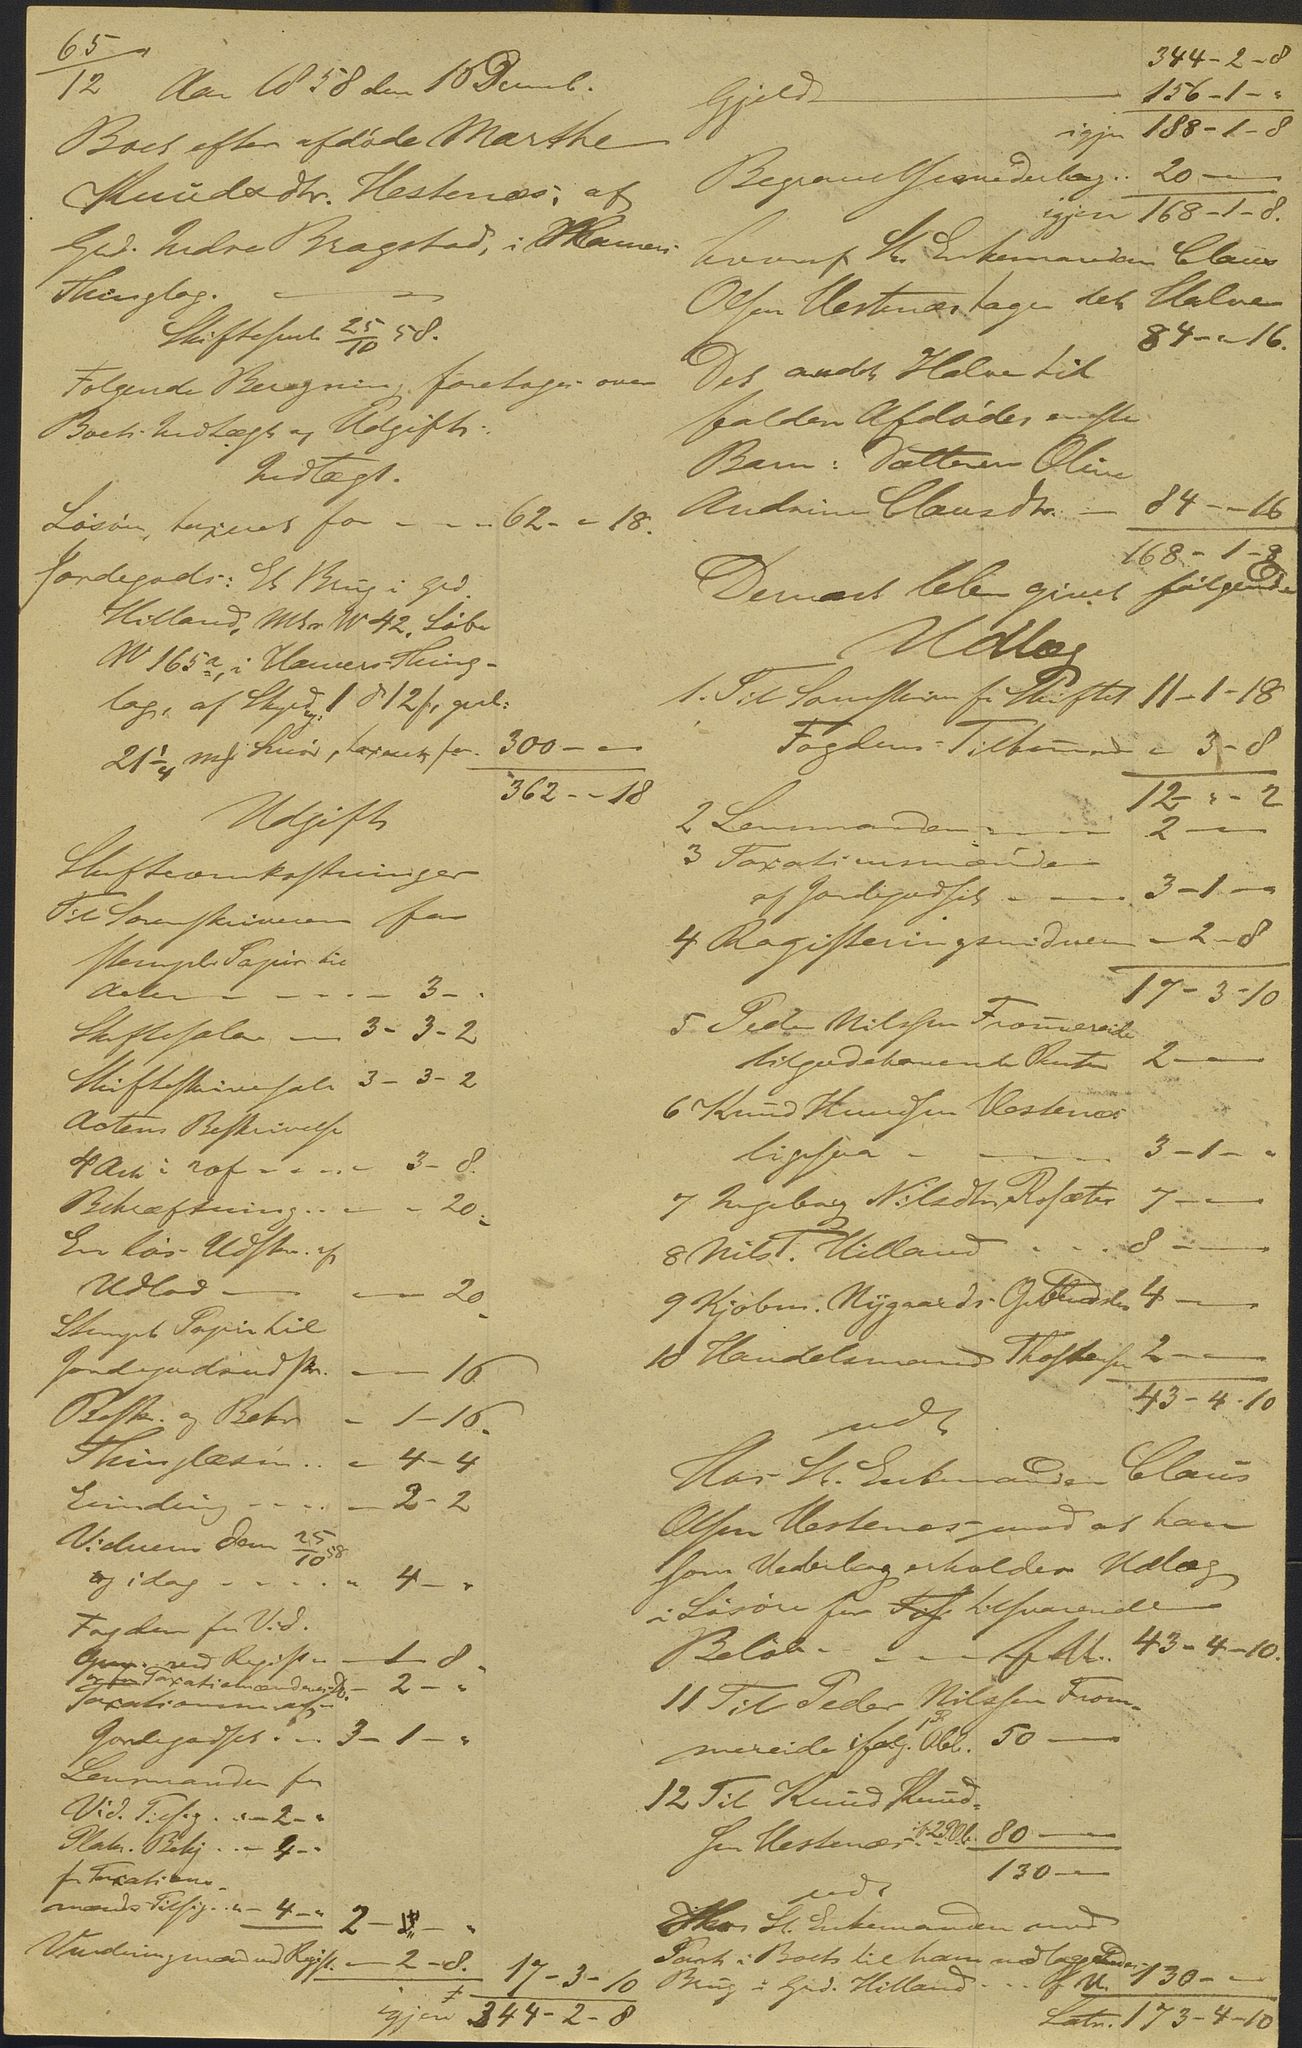 65/12 Aar 1858 den 16 Decemb.
Boet efter afdøde Marthe
Knudsdtr. Hestenæs, af
Grd. Indre Bragstad, i Hammers
Thinglag.
Skiftesml. 25/10 58.
Følgende Beregning foretages over
Boets Indtægt og Udgift:
Indtægt.
Løsøre, taxeret for - - - 62 - " - 18.
Jordegods: Et Brug i Grd.
Hilland, Mtr N 42, Løbe
N 165a, i Hamers Thing-
lag, af Skyld, 1 d 12 s,
21 1/4 mk Smør, taxeret for 300 - "
362 - " - 18
Udgift
Skifteomkostninger
Til Sorenskriveren for
stemplt Papir til
Acten - - - - 3 - "
Skiftesalær - 3 - 3 - 2
Skifteskriversalr 3 - 3 - 2
Actens Beskrivelse
4 Ark i - - - 3 - 8.
Bekræftning - - - 20.
En løs Udskr. af
Udlod - - - 20
Stemplt Papir til
Jordegodsudskr. - - 16
Beskr. og Bekr - 1 - 16.
Thinglæsn. - 4 - 4
- - - 2 - 2
Vidnerne den 25/10 58
og idag - - - - " 4 - "
Fogden for Vid.
ved Regist - - 1 - 8
Taxationsmændene - 2 - "
Taxationsm. af
Jordegodset - - 3 - 1 - "
Lensmanden for
Vid. Tilsig. - " - 2 - "
Plak. Bekj - - 4 - "
for Taxations-
mænds Tilsig. - " - 4 - " 2 - "
Vurderingsmænd ved Regist. - 2 - 8. 17 - 3 - 10
igjen 344 - 2 - 8
344 - 2 - 8
Gjeld 156 - 1 - "
igjen 188 - 1 - 8
Begravelsesnederlag - 20 -
igjen 168 - 1 - 8.
hvoraf St. Enkemanden Claus
Olsen Hestenæs tager det Halve
84 - " - 16.
Det andet Halve til
falder Afdødes eneste
Barn: Datteren Oline
Andrine Clausdtr. - 84 - " - 16
168 - 1 - 8
Dernæst blev givet følgende
Udlæg
1. Til Sorenskriv. for Skiftet 11 - 1 - 18
Fogdens Tilkommende - 3 - 8
12 - " - 2
2 Lensmanden - - - 2 -
3 Taxationsmændene
af Jordegodset - - - 3 - 1 - "
4 Registeringsvidnerne - 2 - 8
17 - 3 - 10
5 Peder Nilssen Frommereide
tilgodehavende Renter 2 -
6 Knud Knudsen Hestenæs
ligesaa - - - 3 - 1 - "
7 Ingeborg Nilsdtr. Rosæter 7 -
8 Nils T. Hilland - - 8 -
9 Kjøbm. Nygaards 4 -
10 Handelsmand Thostensen 2 -
43 - 4 - 10
udt
Hos St. Enkemanden Claus
Olsen Hestenæs mod at han
som Vederlag erholder Udlæg
i Løsøre for tilsvarende
Beløb - - - 43 - 4 - 10.
11 Til Peder Nilssen From-
mereide ifølg. 1 Pr. Obl. 50 -
12 Til Knud Knud-
sen Hestenæs 2 Pr. Ob. 80 -
130 -
udt
Hos St. Enkemanden mod
Pant i Boets til ham udlagte
Brug i Grd. Hilland - - - 130 - "
Latr. 173 - 4 - 10